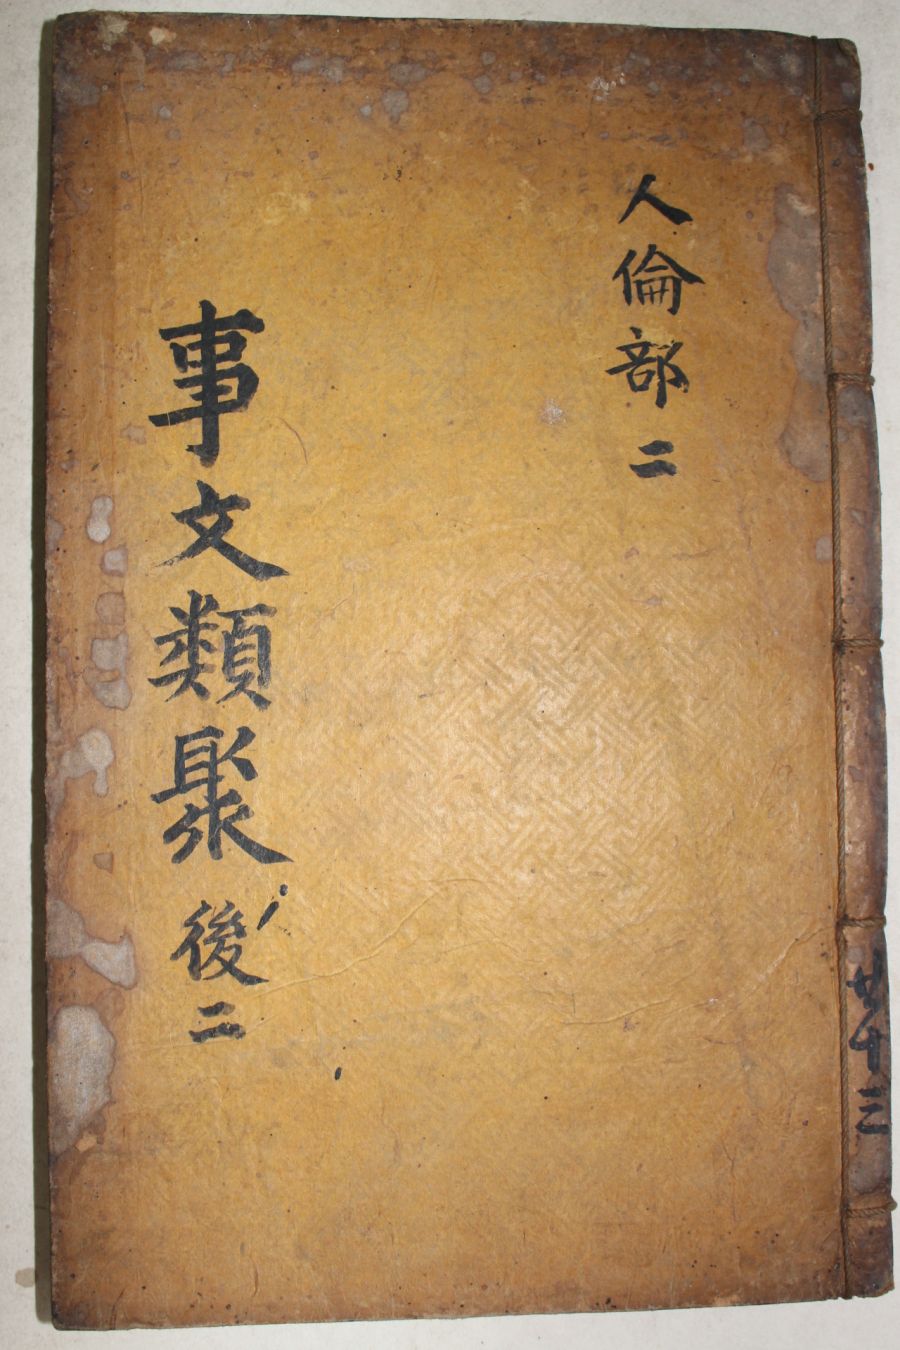 人倫部 二
事文類聚 後二